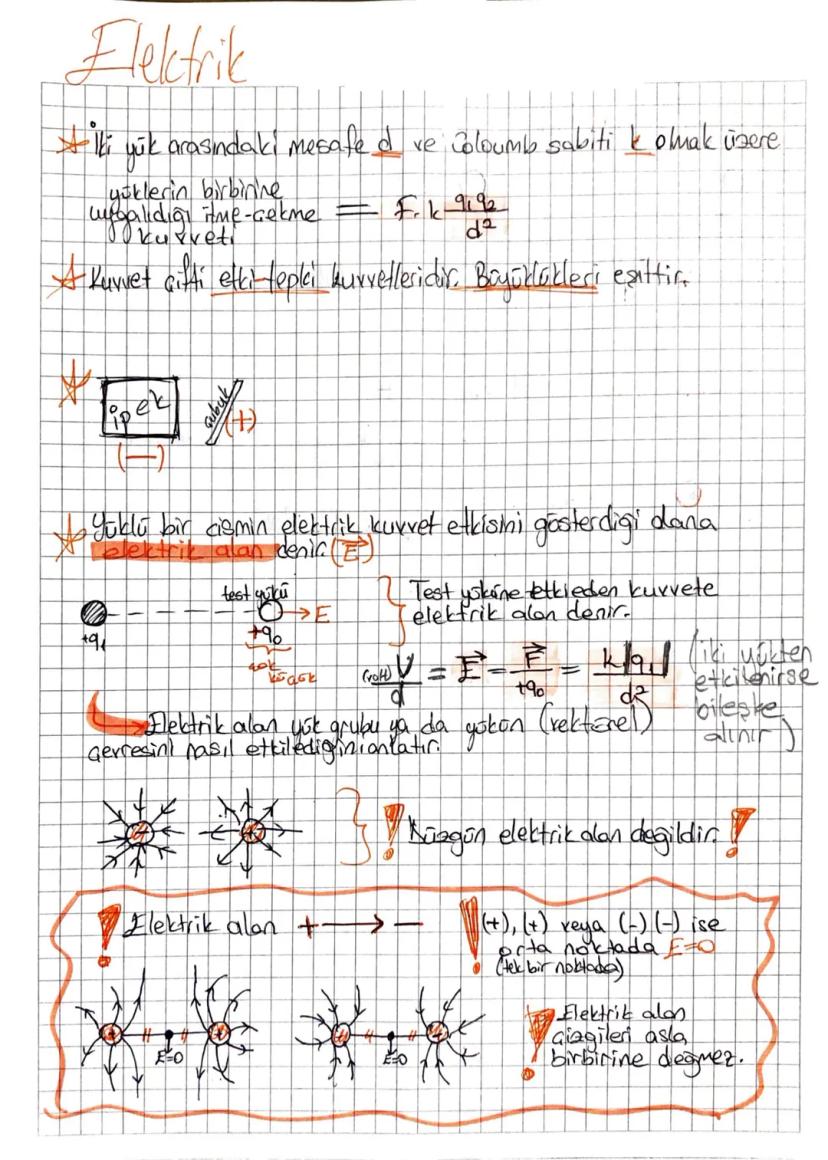 Elektrik
İki yük arasındaki mesafe d ve Coloumb sabiti k olmak üzere
yüklerin birbirine
uyguladığı itme-çekme = F. k q₁q₂/d²
kuvveti
Kuvvet çifti etki-tepki kuvvetleridir. Büyüklükleri eşittir.
ipek çubuk
(—) (+)
Yüklü bir cismin elektrik kuvvet etkisini gösterdiği alana
elektrik alan denir. (E)
test yükü
E
+q₁ +q₀
çok küçük
Test yüküne etki eden kuvvete
elektrik alan denir.
(volt) V/d = E = F/+q₀ = k|q₁|/d²
(iki yükten
etkilenirse
bileşke
alınır)
Elektrik alan yük grubu ya da yükün (vektörel)
çevresini nasıl etkilediğini anlatır.
! Düzgün elektrik alan değildir. !
! Elektrik alan + → —
! (+), (+) veya (-) (-) ise
orta noktada E=0
(tek bir noktada)
E=0 E=0
! Elektrik alan
çizgileri asla
birbirine değmez.